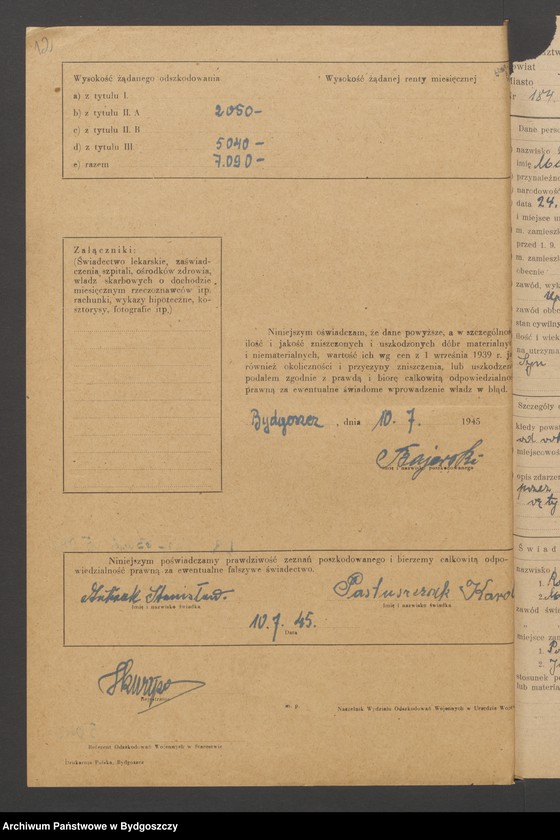 12
Wysokość żądanego odszkodowania
Wysokość żądanej renty miesięcznej
a) z tytułu I.
b) z tytułu II. A 2050-
c) z tytułu II. B
d) z tytułu III. 5040-
e) razem 7.090-
Załączniki:
(Świadectwo lekarskie, zaświad-
czenia szpitali, ośrodków zdrowia,
władz skarbowych o dochodzie
miesięcznym rzeczoznawców itp.
rachunki, wykazy hipoteczne, ko-
sztorysy, fotografie itp.)
Niniejszym oświadczam, że dane powyższe, a w szczególnoś
ilość i jakość zniszczonych i uszkodzonych dóbr materialny
i niematerialnych, wartość ich wg cen z 1 września 1939 r. j
również okoliczności i przyczyny zniszczenia, lub uszkodzen
podałem zgodnie z prawdą i biorę całkowitą odpowiedzialno
prawną za ewentualne świadome wprowadzenie władz w błąd.
Bydgoszcz, dnia 10. 7. 1945
Imię i nazwisko poszkodowanego
Niniejszym poświadczamy prawdziwość zeznań poszkodowanego i bierzemy całkowitą odpo-
wiedzialność prawną za ewentualne fałszywe świadectwo.
Stanisław
Pastuszczak Karol
Imię i nazwisko świadka
Imię i nazwisko świadka
10. 7. 45.
Data
m. p.
Naczelnik Wydziału Odszkodowań Wojennych w Urzędzie Woje
Referent Odszkodowań Wojennych w Starostwie
Drukarnia Polska, Bydgoszcz
owiat
Miasto
Nr 184
Dane perso
nazwisko
imię
przynależno
narodowość
data 24.
i miejsce u
m. zamieszk
przed 1. 9.
m. zamieszk
obecnie
zawód, wyk
zawód obec
stan cywiln
ilość i wiek
na utrzyma
Szczegóły
kiedy powst
miejscowoś
opis zdarzen
przez
Świad
nazwisko i
1.
2.
zawód świa
miejsce zam
1.
2.
stosunek po
lub materia
Archiwum Państwowe w Bydgoszczy